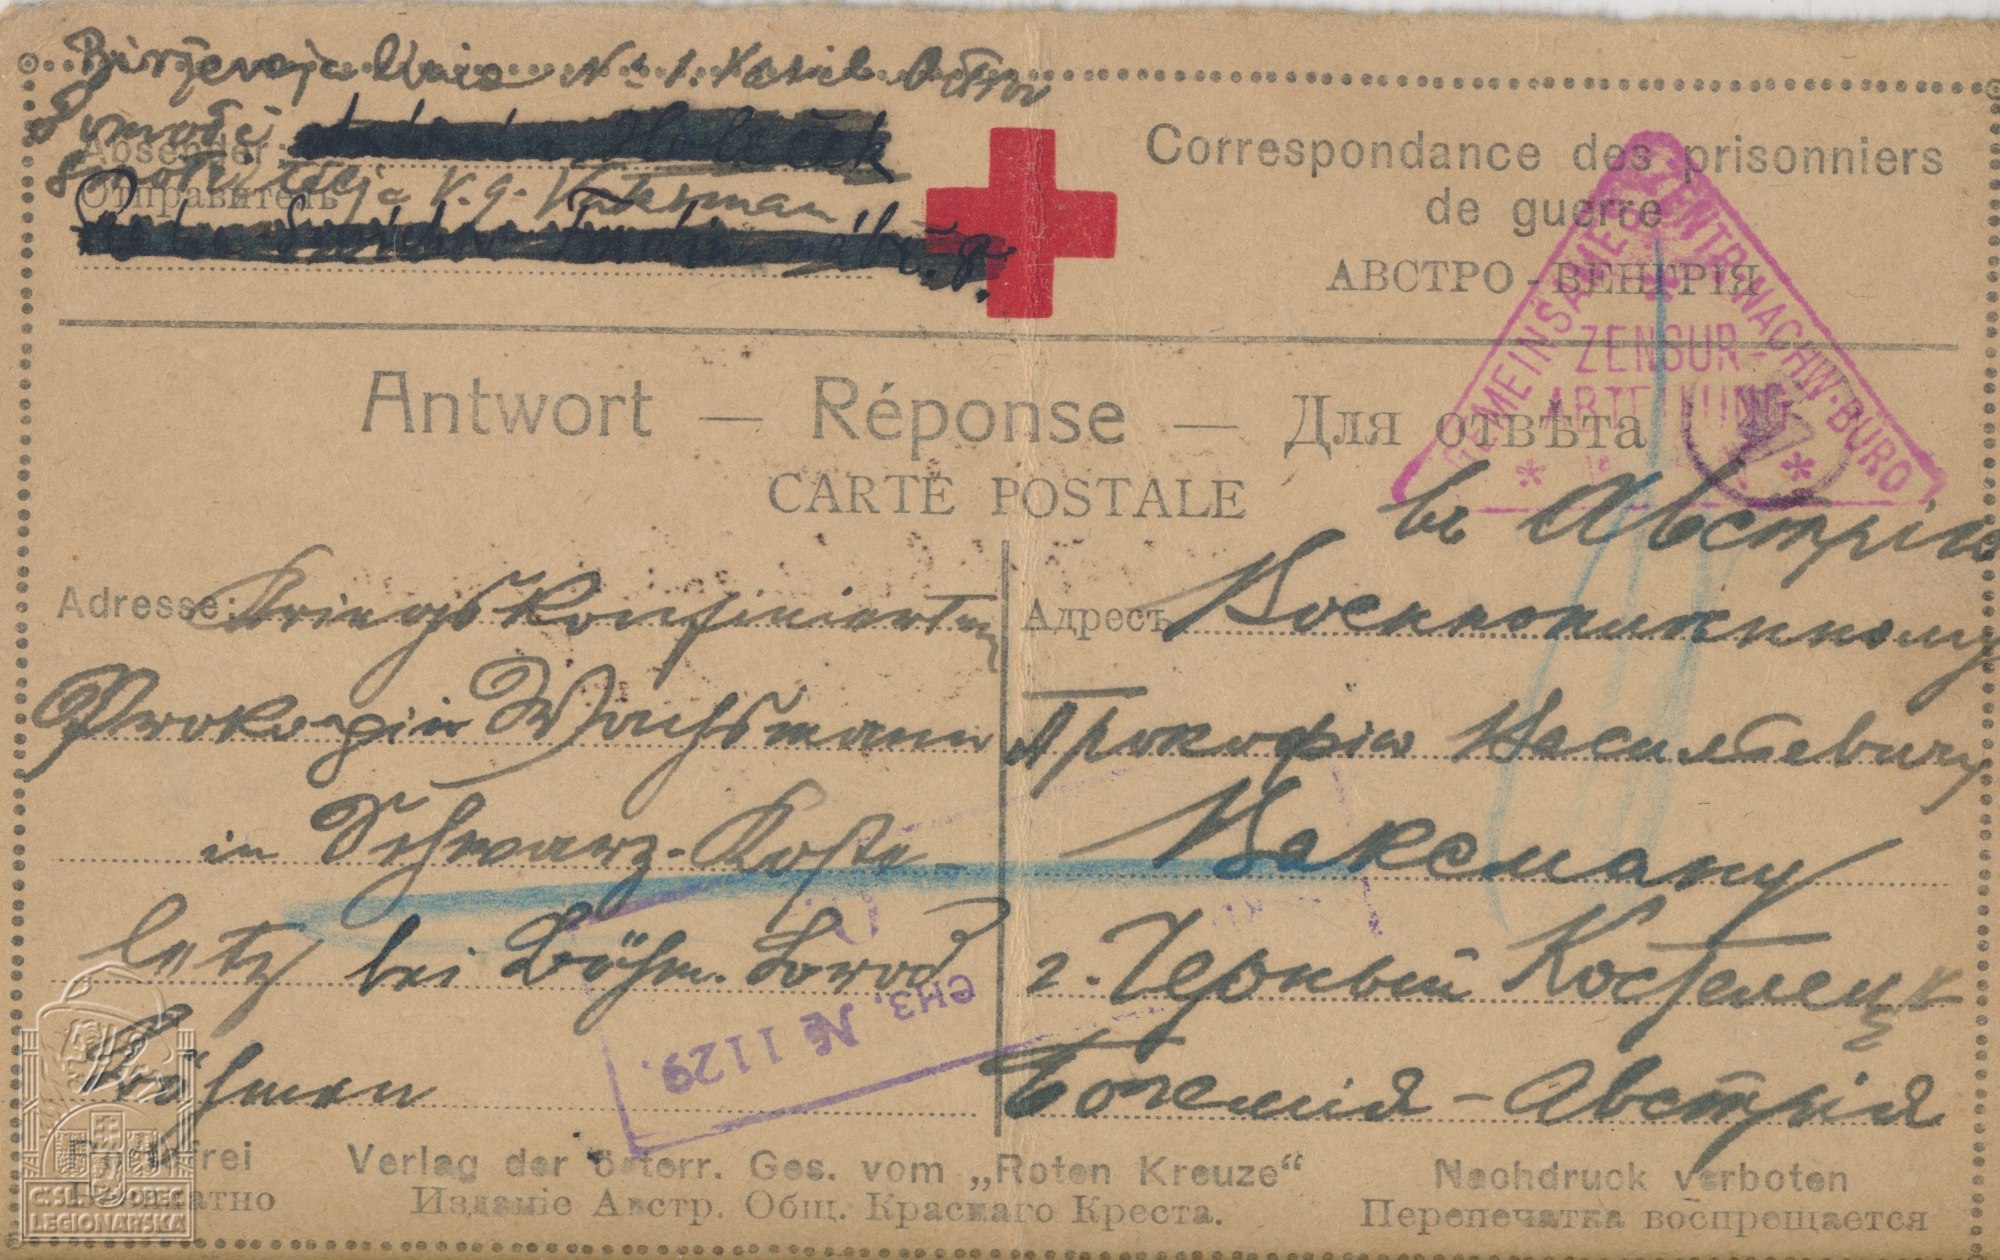 Birževaja Linia No 1. Vasil. Ostrov
Absender
Отправитель
V. G. Vaksman
Correspondance des prisonniers
de guerre
АВСТРО - ВЕНГРІЯ
GEMEINSAMES ZENTRALNACHW. BÜRO
ZENSUR
ABTEILUNG
Antwort — Réponse — Для отвѣта
CARTE POSTALE
въ Австрію
Adresse: Kriegskonfinierten
Prokopiu Wachsmann
in Schwarz-Koste-
letz bei Böhm. Brod
Böhmen
Адресъ Военнопленному
Прокофію Васильевичу
Ваксману
г. Черный Костелецъ
Богемія - Австрія
енз. № 1129.
Portofrei
Безплатно
Verlag der österr. Ges. vom „Roten Kreuze“
Изданіе Австр. Общ. Краснаго Креста.
Nachdruck verboten
Перепечатка воспрещается
ČSL. OBEC
LEGIONÁŘSKÁ